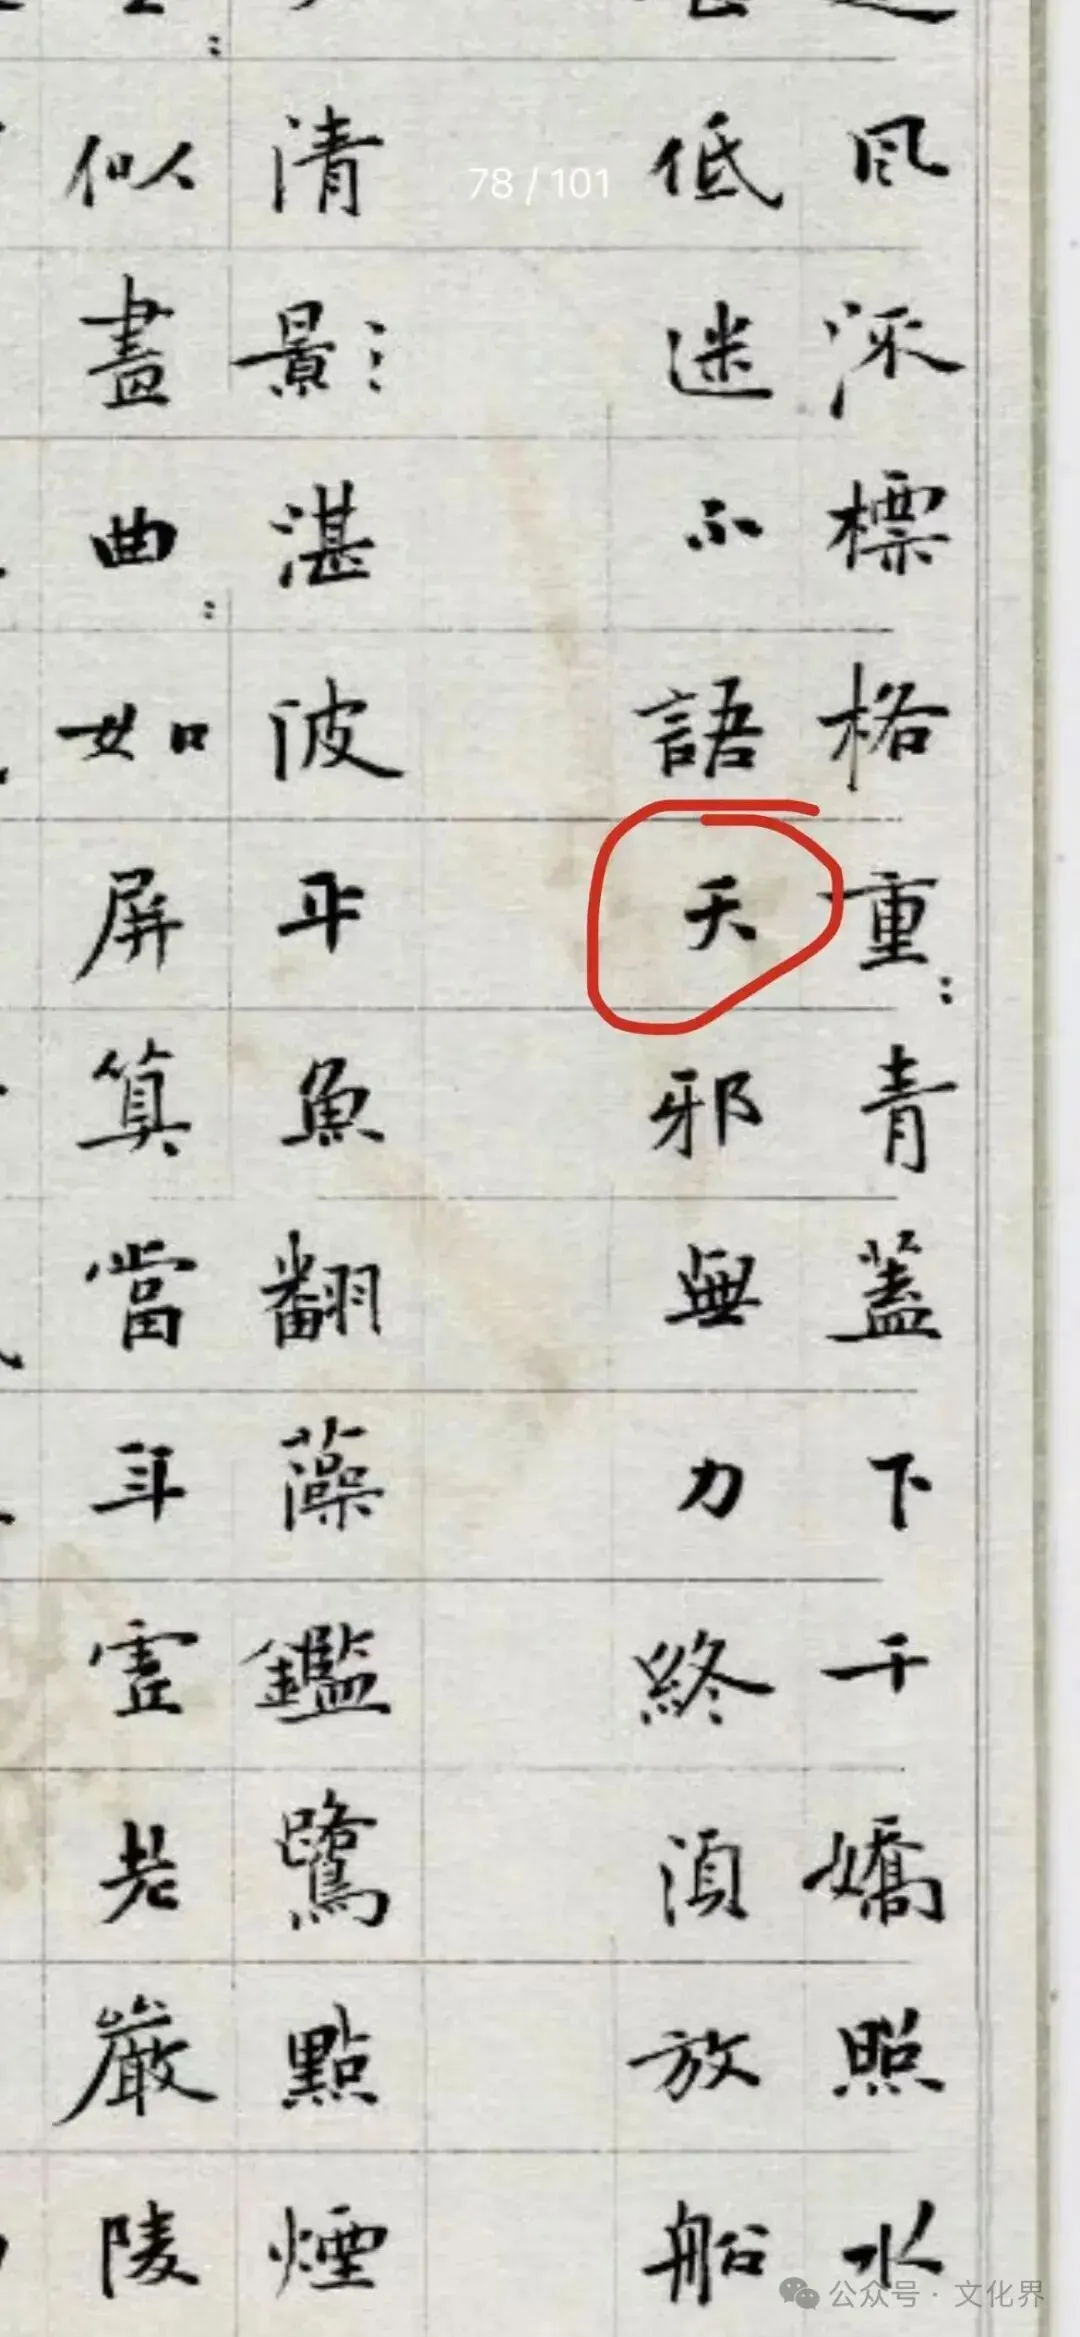 78/101
風流標格重青蓋下千嬌照水
低迷不語夭邪無力終須放船
清影湛波平魚翻藻鑑鷺點煙
似畫曲如屏算當年虛老嚴陵
公众号·文化界